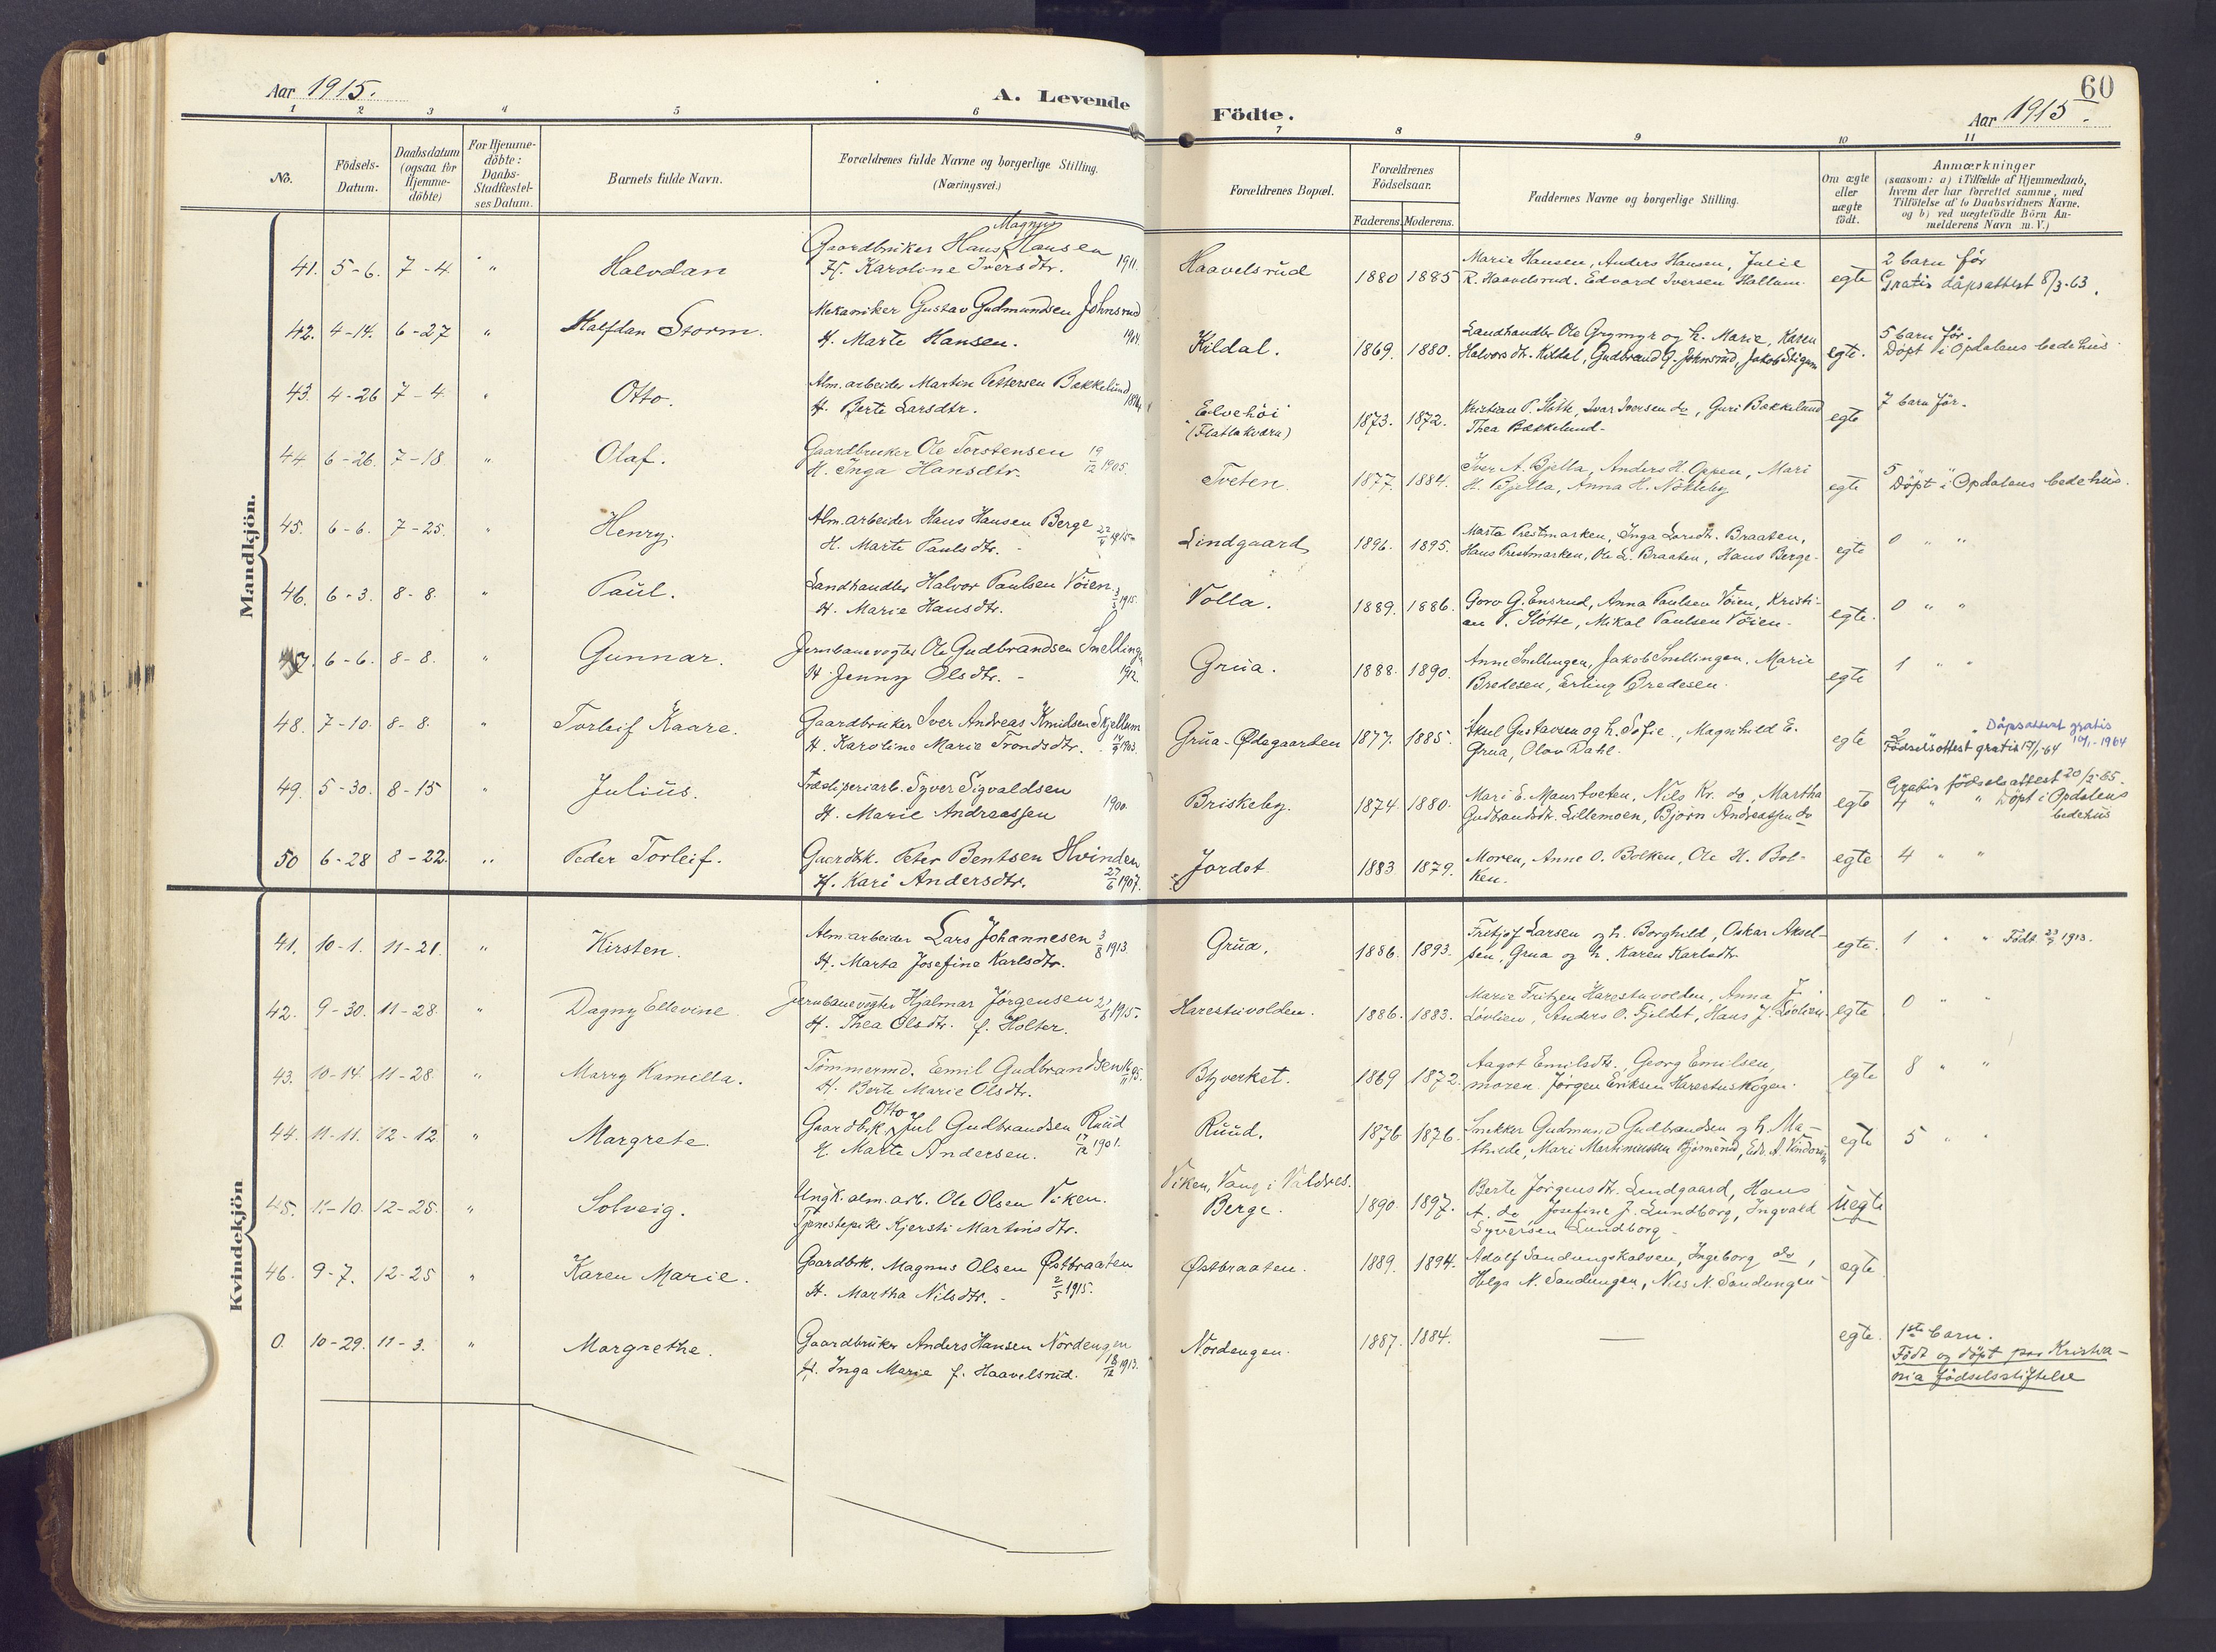 Aar 1915.
A. Levende
Födte.
60
Aar 1915.
1 2 3 4 5 6 7 8 9 10 11
No.
Födsels-
Datum.
Daabsdatum
(ogsaa for
Hjemme-
döbte)
For Hjemme-
döbte:
Daabs-
Stadfæstel-
ses Datum.
Barnets fulde Navn.
Forældrenes fulde Navne og borgerlige Stilling.
(Næringsvei.)
Forældrenes Bopæl.
Forældrenes
Födselsaar.
Faderens. Moderens.
Faddernes Navne og borgerlige Stilling.
Om ægte
eller
uægte
födt.
Anmærkninger
(saasom: a) i Tilfælde af Hjemmedaab,
hvem der har forrettet samme, med
Tilföielse af to Daabsvidners Navne.
og b) ved uegtefödte Börn An-
melderens Navn m. V.)
Mandkjön.
41. 5-6. 7-4. " Halvdan
Magnus
Gaardbruker Hans Hansen
H. Karoline Iversdtr. 1911.
Haavelsrud 1880 1885
Marie Hansen, Anders Hansen, Julie
R. Haavelsrud. Edvard Iversen Hallum.
egte
2 barn för
Gratis dåpsattest 8/3-63.
42. 4-14. 6-27 " Halfdan Storm.
Mekaniker Gustav Gudmundsen Johnsrud
H. Marte Hansen.
Kildal. 1869. 1880.
Landhandler Ole Grymyr og h. Marie, Karen
Halvorsdtr. Kildal, Gudbrand G. Johnsrud, Jakob Stigum
egte.
5 barn för.
Döpt i Opdalens bedehus.
43. 4-26 7-4. " Otto.
Alm. arbeider Martin Pettersen Bækkelund
H. Berte Larsdtr.
Elvehöi
(Flatlakværn)
1873. 1872.
Kristian P. Slötte, Ivar Iversen do, Guri Bækkelund
Thea Bækkelund.
egte
7 barn för.
44. 6-26. 7-18. " Olaf.
Gaardbruker Ole Torstensen 19/12 1905.
H. Inga Hansdtr.
Tveten. 1877. 1884.
Iver A. Bjella, Anders H. Oppen, Mari
H. Bjella, Anna H. Nökleby
egte
5 " "
Döpt i Opdalens bedehus.
45. 6-6. 7-25. " Henry.
Alm. arbeider Hans Hansen Berge 22/4 1915.
H. Marte Paulsdtr.
Lindgaard 1896. 1895.
Marta Prestmarken, Inga Larsdtr. Braaten,
Hans Prestmarken, Ole L. Braaten, Hans Berge.
egte
0 " "
46. 6-3. 8-8. " Paul.
Landhandler Halvor Paulsen Vöien 1915.
H. Marie Hansdtr.
Volla. 1889. 1886.
Goro G. Ensrud, Anna Paulsen Vöien, Kristi-
an P. Slötte, Mikal Paulsen Vöien.
egte.
0 " "
47. 6-6. 8-8. " Gunnar.
Jernbanevogter Ole Gudbrandsen Snellingen
H. Jenny Olsdtr. 1912.
Grua. 1888. 1890.
Anne Snellingen, Jakob Snellingen. Marie
Bredesen, Erling Bredesen.
egte
1 " "
48. 7-10. 8-8. " Torleif Kaare.
Gaardbruker Iver Andreas Knudsen Skjellum
H. Karoline Marie Trondsdtr. 1903.
Grua-Ødegaarden 1877. 1885.
Aksel Gustavsen og h. Sofie, Magnhild E.
Grua, Olav Dahl.
egte
Dåpsattest gratis
10/1-1964
2 " "
Födselsattest gratis 17/1-64
49. 5-30. 8-15 " Julius.
Træsliperiarb. Syver Sigvaldsen
H. Marie Andreassen 1900.
Briskeby. 1874. 1880.
Mari E. Maurtveten, Nils Kr. do, Martha
Gudbrandsdtr. Lillemoen, Björn Andreassen do
egte
Gratis födselsattest 20/5-65.
4 " " Döpt i Opdalens
bedehus
50 6-28 8-22. " Peder Torleif.
Gaardbrk. Peter Bentsen Hvinden
H. Kari Andersdtr. 27/6 1907.
Jordet 1883 1879.
Moren, Anne O. Bolken, Ole H. Bol-
ken.
egte
4 " "
Kvindekjön
41. 10-1. 11-21. " Kirsten.
Alm. arbeider Lars Johannesen 3/8 1913.
H. Marta Josefine Karlsdtr.
Grua, 1886. 1893.
Fritjof Larsen og h. Borghild, Oskar Aksel-
sen, Grua og h. Karen Karlsdtr
egte.
1 " " Födt 23/9 1913.
42. 9-30. 11-28. " Dagny Ellevine.
Jernbanevogter Hjalmar Jörgensen 1915.
H. Thea Olsdtr. f. Holter.
Harestuvolden. 1886. 1883.
Marie Fritzen Harestuvolden, Anna J.
Lövlien, Anders O. Fjeldet, Hans J. Lövlien.
egte
0 " "
43. 10-14. 11-28. " Marry Kamilla.
Tömmermd. Emil Gudbrandsen
H. Berte Marie Olsdtr.
Blyverket. 1869 1872.
Aagot Emilsdtr., Georg Emilsen,
moren. Jörgen Eriksen Harestuskogen.
egte
8 " "
44. 11-11. 12-12. " Margrete.
Otto
Gaardbrk. Jul Gudbrandsen Ruud
H. Marte Andersen. 17/12 1901.
Ruud. 1876 1876.
Snekker Gudmund Gudbrandsen og h. Ma-
thilde, Mari Martiniussen Björnerud, Edv. A. Vindorum
egte
5 " "
45. 11-10. 12-25. " Solveig.
Ungk. alm. arb. Ole Olsen Viken.
Tjenestepike Kjersti Martinsdtr.
Viken, Vang i Valdres.
Berge. 1890. 1897.
Berte Jörgensdtr. Lundgaard, Hans
A. do Josefine J. Lundborg, Ingvald
Syversen Lundborg.
Uegte
46. 9-7. 12-25 " Karen Marie.
Gaardbrk. Magnus Olsen Østbraaten
H. Martha Nilsdtr. 2/5 1915.
Østbraaten. 1889. 1894.
Adolf Sandungskalven, Ingeborg do,
Helga N. Sandungen, Nils N. Sandungen
egte
0. 10-29. 11-3. " Margrethe.
Gaardbruker Anders Hansen Nordengen
H. Inga Marie f. Haavelsrud. 18/12 1913.
Nordengen. 1887. 1884.
—
egte.
1ste barn.
Födt og döpt paa Kristia-
nia födselsstiftelse